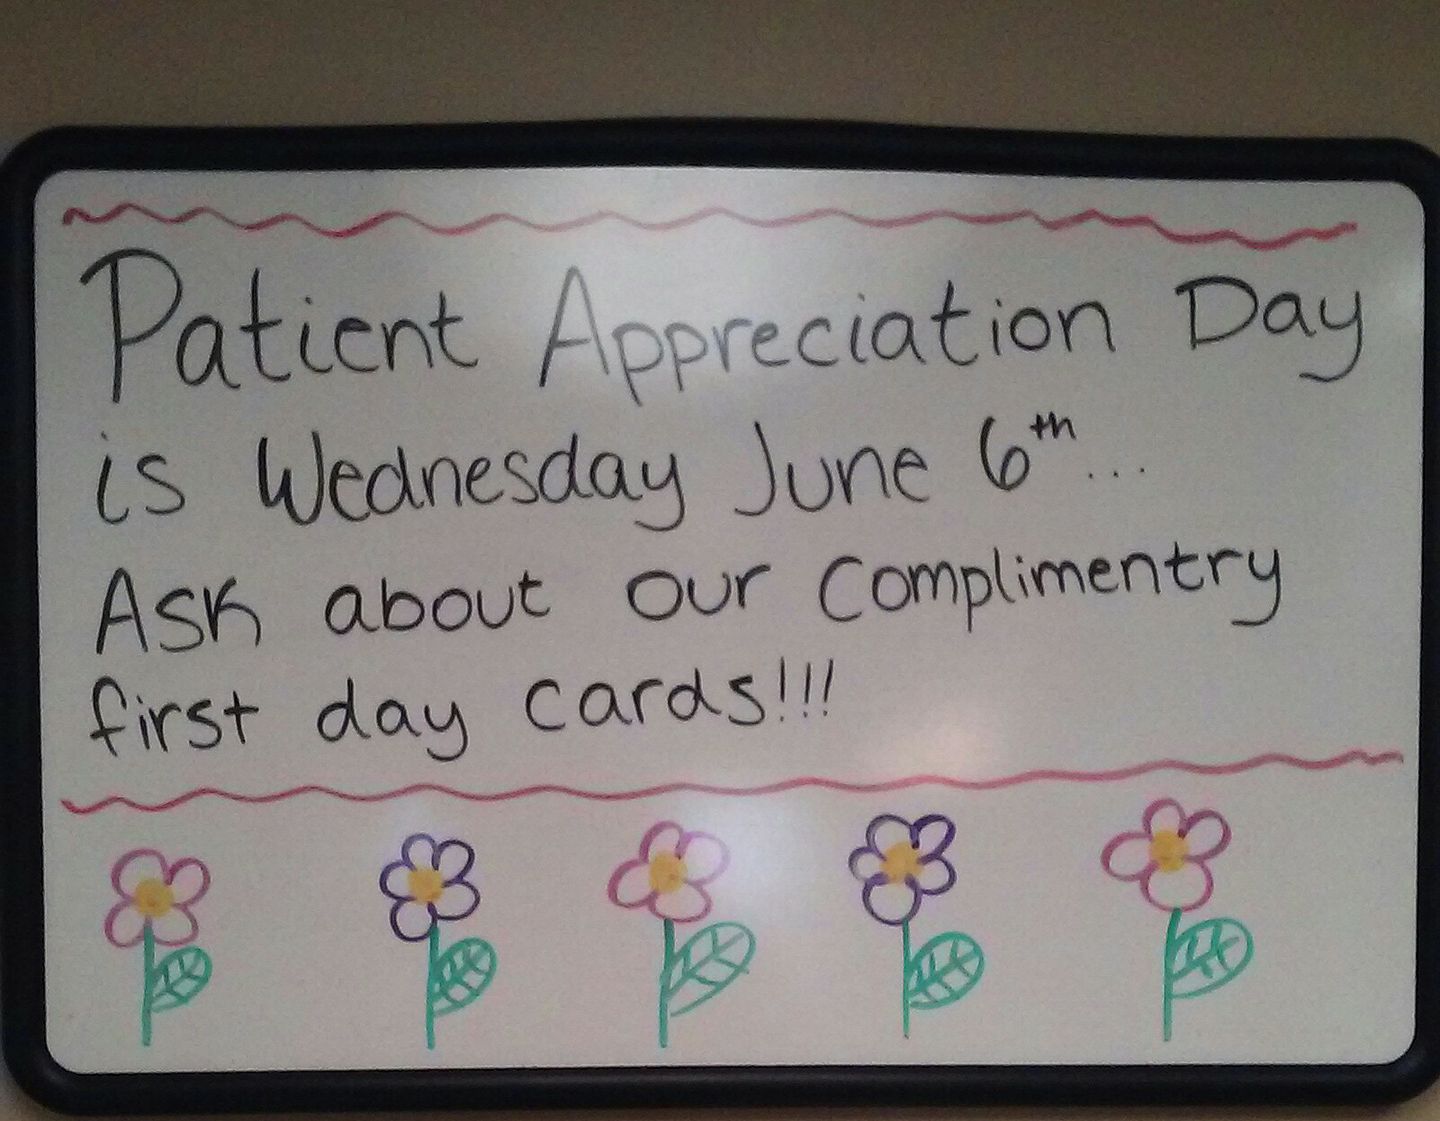 Patient Appreciation Day
is Wednesday June 6th...
Ask about our complimentry
first day cards!!!